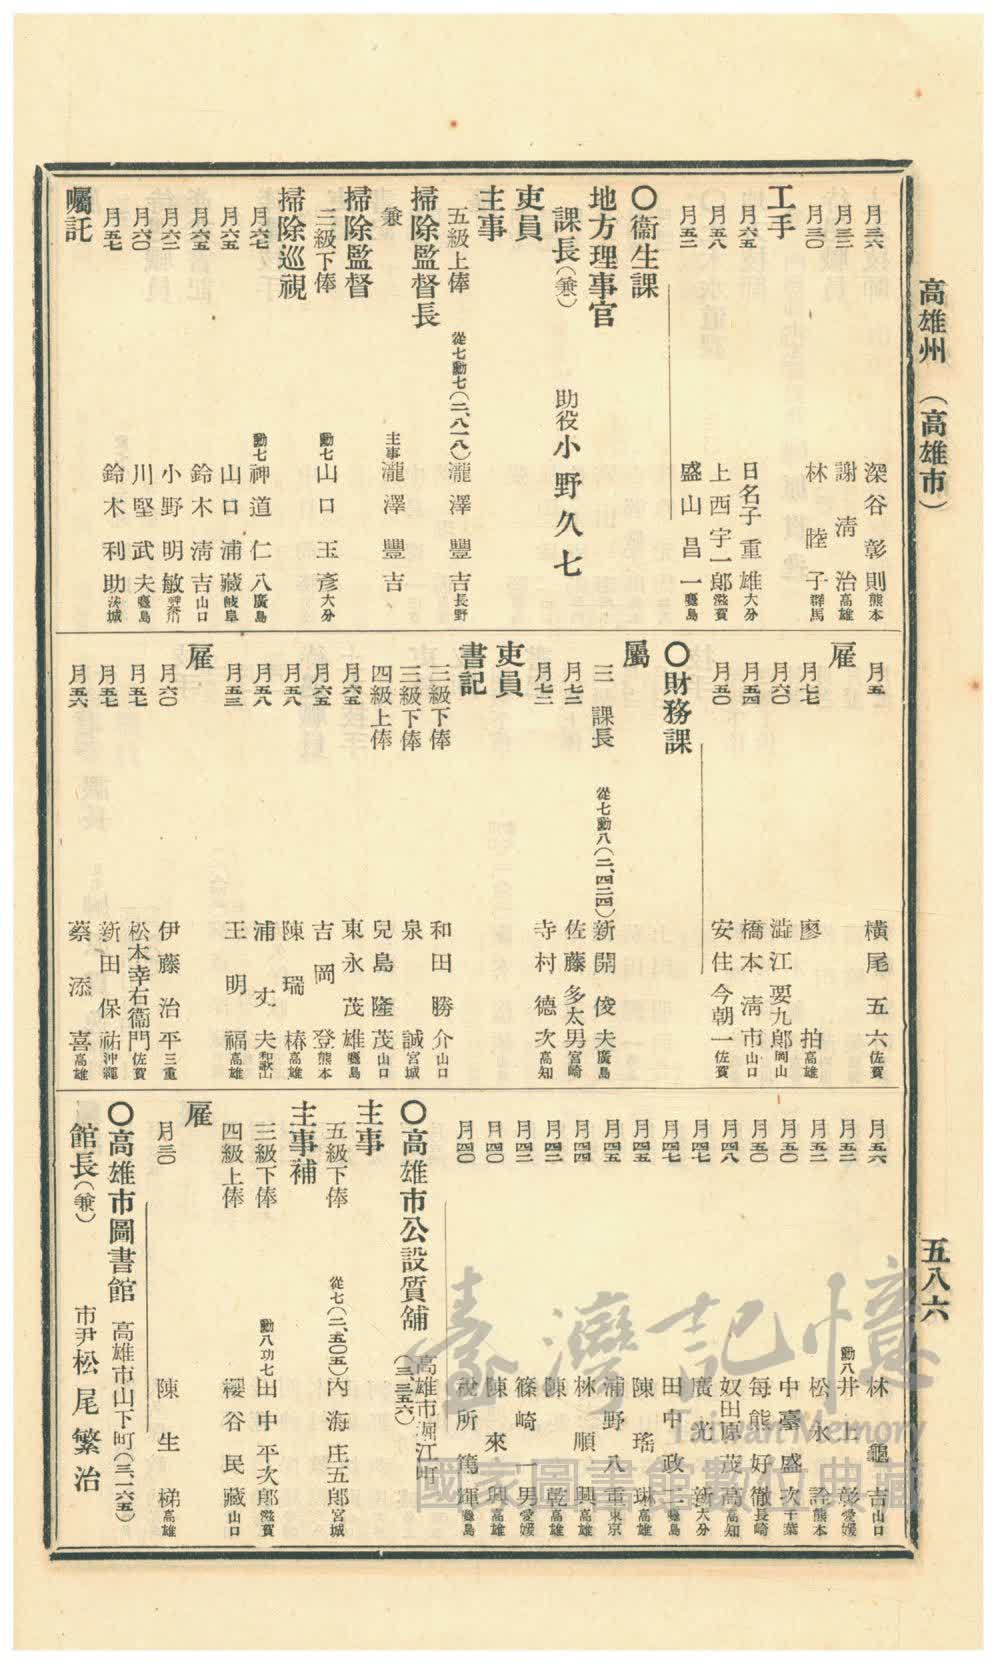 高雄州 (高雄市)
五八六
月三六 深谷彰則 熊本
月三二 謝清治 高雄
月三〇 林睦子 群馬
工手
月六五 日名子重雄 大分
月五八 上西宇一郎 滋賀
月五二 盛山昌一 鹿兒島
〇衞生課
地方理事官
課長(兼) 助役 小野久七
吏員
主事
五級上俸 從七勳七(二、八一八) 瀧澤豐吉 長野
掃除監督長
兼 主事 瀧澤豐吉
掃除監督
三級下俸 勳七 山口玉彦 大分
掃除巡視
月六七 勳七 神道仁八 廣島
月六五 山口浦藏 岐阜
月六五 鈴木清吉 山口
月六二 小野明敏 神奈川
月六〇 川堅武夫 鹿兒島
月五七 鈴木利助 茨城
囑託
月五 橫尾五六 佐賀
雇
月七七 廖拍 高雄
月六〇 澁江要九郎 岡山
月五四 橋本淸市 山口
月五〇 安住今朝一 佐賀
〇財務課
屬
三 課長 從七勳八(二、四二四) 新開俊夫 廣島
月七二 佐藤多太男 宮崎
月七二 寺村德次 高知
吏員
書記
三級下俸 和田勝介 山口
三級下俸 泉誠 宮城
四級上俸 兒島隆茂 山口
月六五 東永茂雄 鹿兒島
月六五 吉岡登 熊本
月五八 陳瑞椿 高雄
月五八 浦丈夫 和歌山
月五三 王明福 高雄
雇
月六〇 伊藤治平 三重
月五七 松本幸右衞門 佐賀
月五七 新田保祐 沖繩
月五六 蔡添喜 高雄
月五六 林龜吉 山口
月五二 勳八 井上彰 愛媛
月五二 松永詮 熊本
月五〇 中臺盛次 千葉
月五〇 每熊好徹 長崎
月四八 奴田原茂高 高知
月四七 廣光新 大分
月四七 田中政二 鹿兒島
月四五 陳瑤琳 高雄
月四五 浦野八重 東京
月四四 林順興 高雄
月四二 陳乾 高雄
月四二 篠崎一男 愛媛
月四〇 陳來興 高雄
月四〇 稅所篤輝 鹿兒島
〇高雄市公設質舖 高雄市堀江町 (三、三五六)
主事
五級下俸 從七(二、五〇五) 內海庄五郎 宮城
主事補
三級下俸 勳八功七 田中平次郎 滋賀
四級上俸 櫻谷民藏 山口
雇
月三〇 陳生梯 高雄
〇高雄市圖書館 高雄市山下町(三、一六五)
館長(兼) 市尹 松尾繁治
臺灣記憶
Taiwan Memory
國家圖書館數位典藏